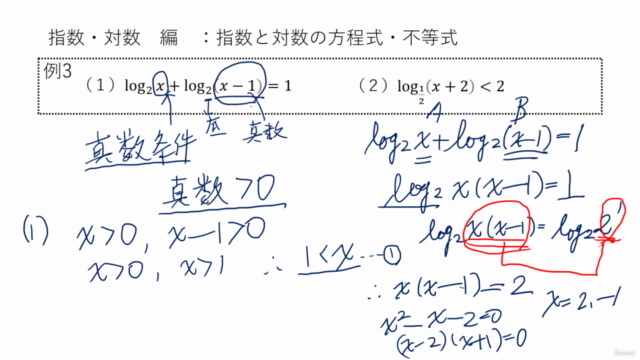 指数・対数 編 ：指数と対数の方程式・不等式
例3
（1）log₂x+log₂(x−1)=1
（2）log_{1/2}(x+2)<2
底 真数
真数条件
真数>0
(1) x>0, x−1>0
x>0, x>1 ∴ 1<x …①
A B
log₂x+log₂(x−1)=1
log₂x(x−1)=1
log₂x(x−1)=log₂2¹
∴ x(x−1)=2
x²−x−2=0
(x−2)(x+1)=0
x=2,−1
Udemy